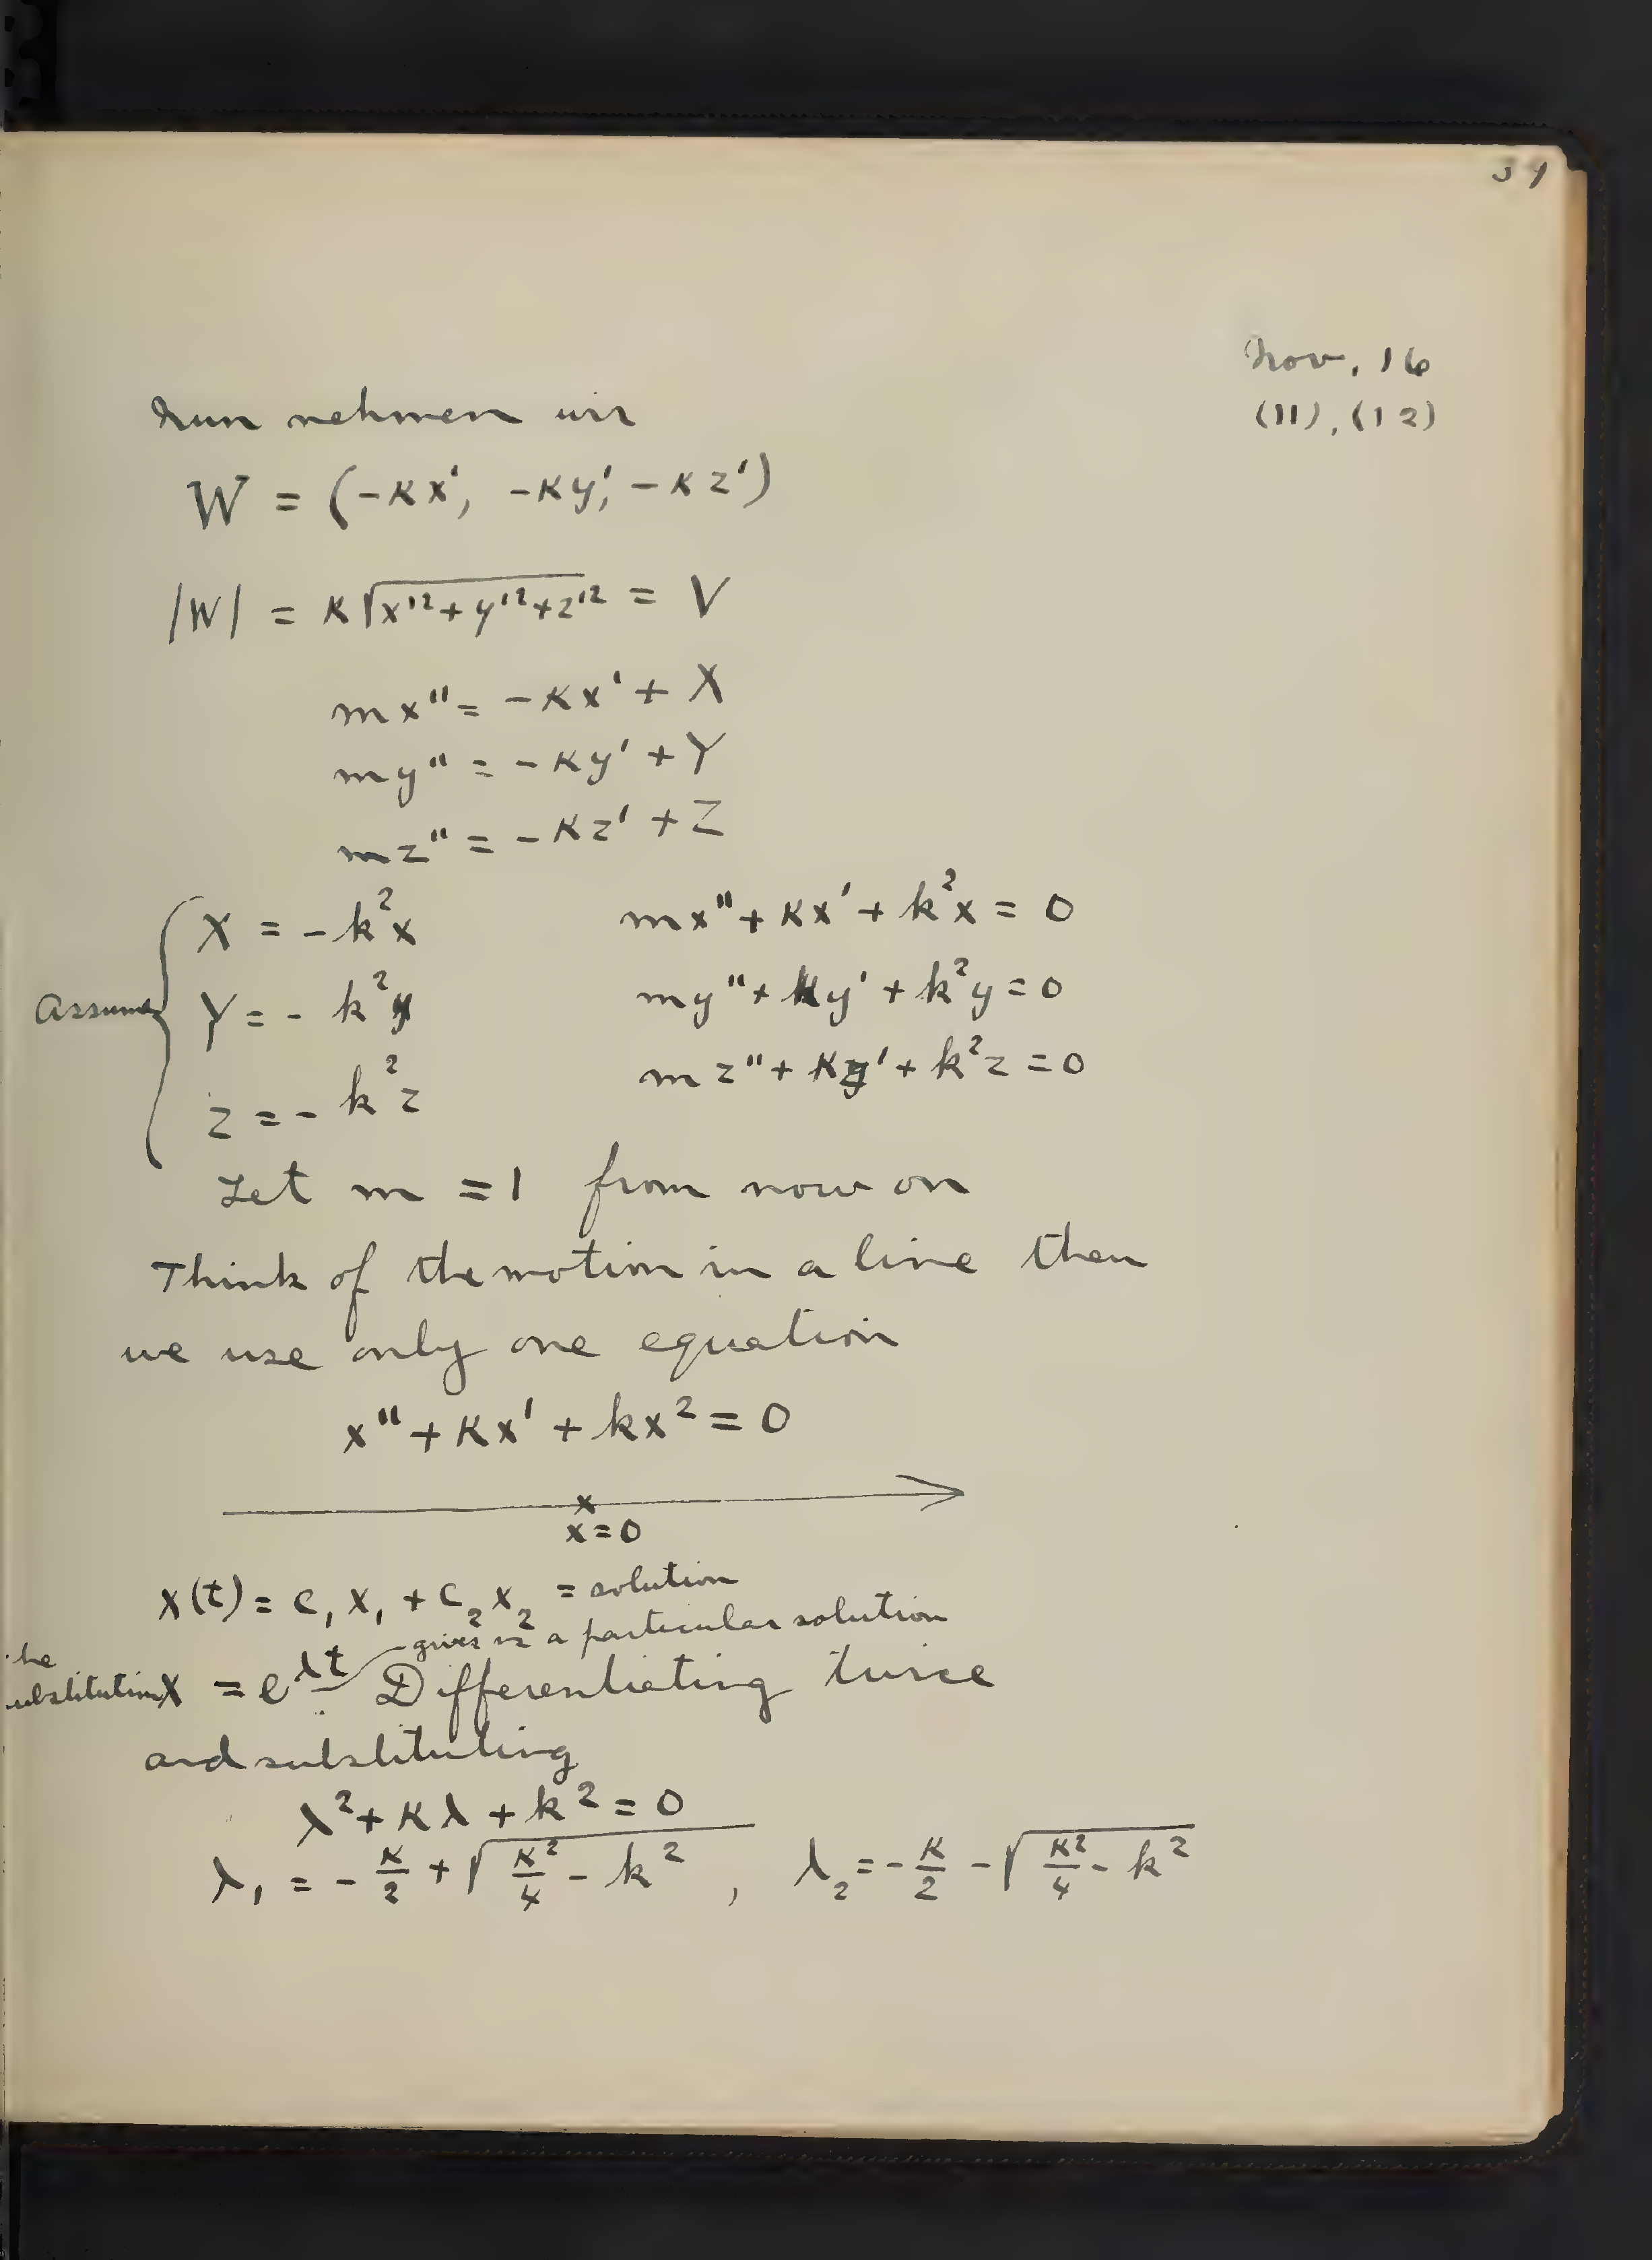 Nov. 16
(11), (12)
Nun nehmen wir
W = (-κx', -κy', -κz')
|W| = κ√(x'² + y'² + z'²) = V
mx'' = -κx' + X
my'' = -κy' + Y
mz'' = -κz' + Z
Assume
X = -k²x    mx'' + κx' + k²x = 0
Y = - k²y    my'' + κy' + k²y = 0
Z = - k²z    mz'' + κz' + k²z = 0
Let m = 1 from now on
Think of the motion in a line then
we use only one equation
x'' + κx' + kx² = 0
x
x = 0
x(t) = c₁x₁ + c₂x₂ = solution
gives us a particular solution
x = e^λt Differentiating twice
and substituting
λ² + κλ + k² = 0
λ₁ = - κ/2 + √(κ²/4 - k²) , λ₂ = - κ/2 - √(κ²/4 - k²)